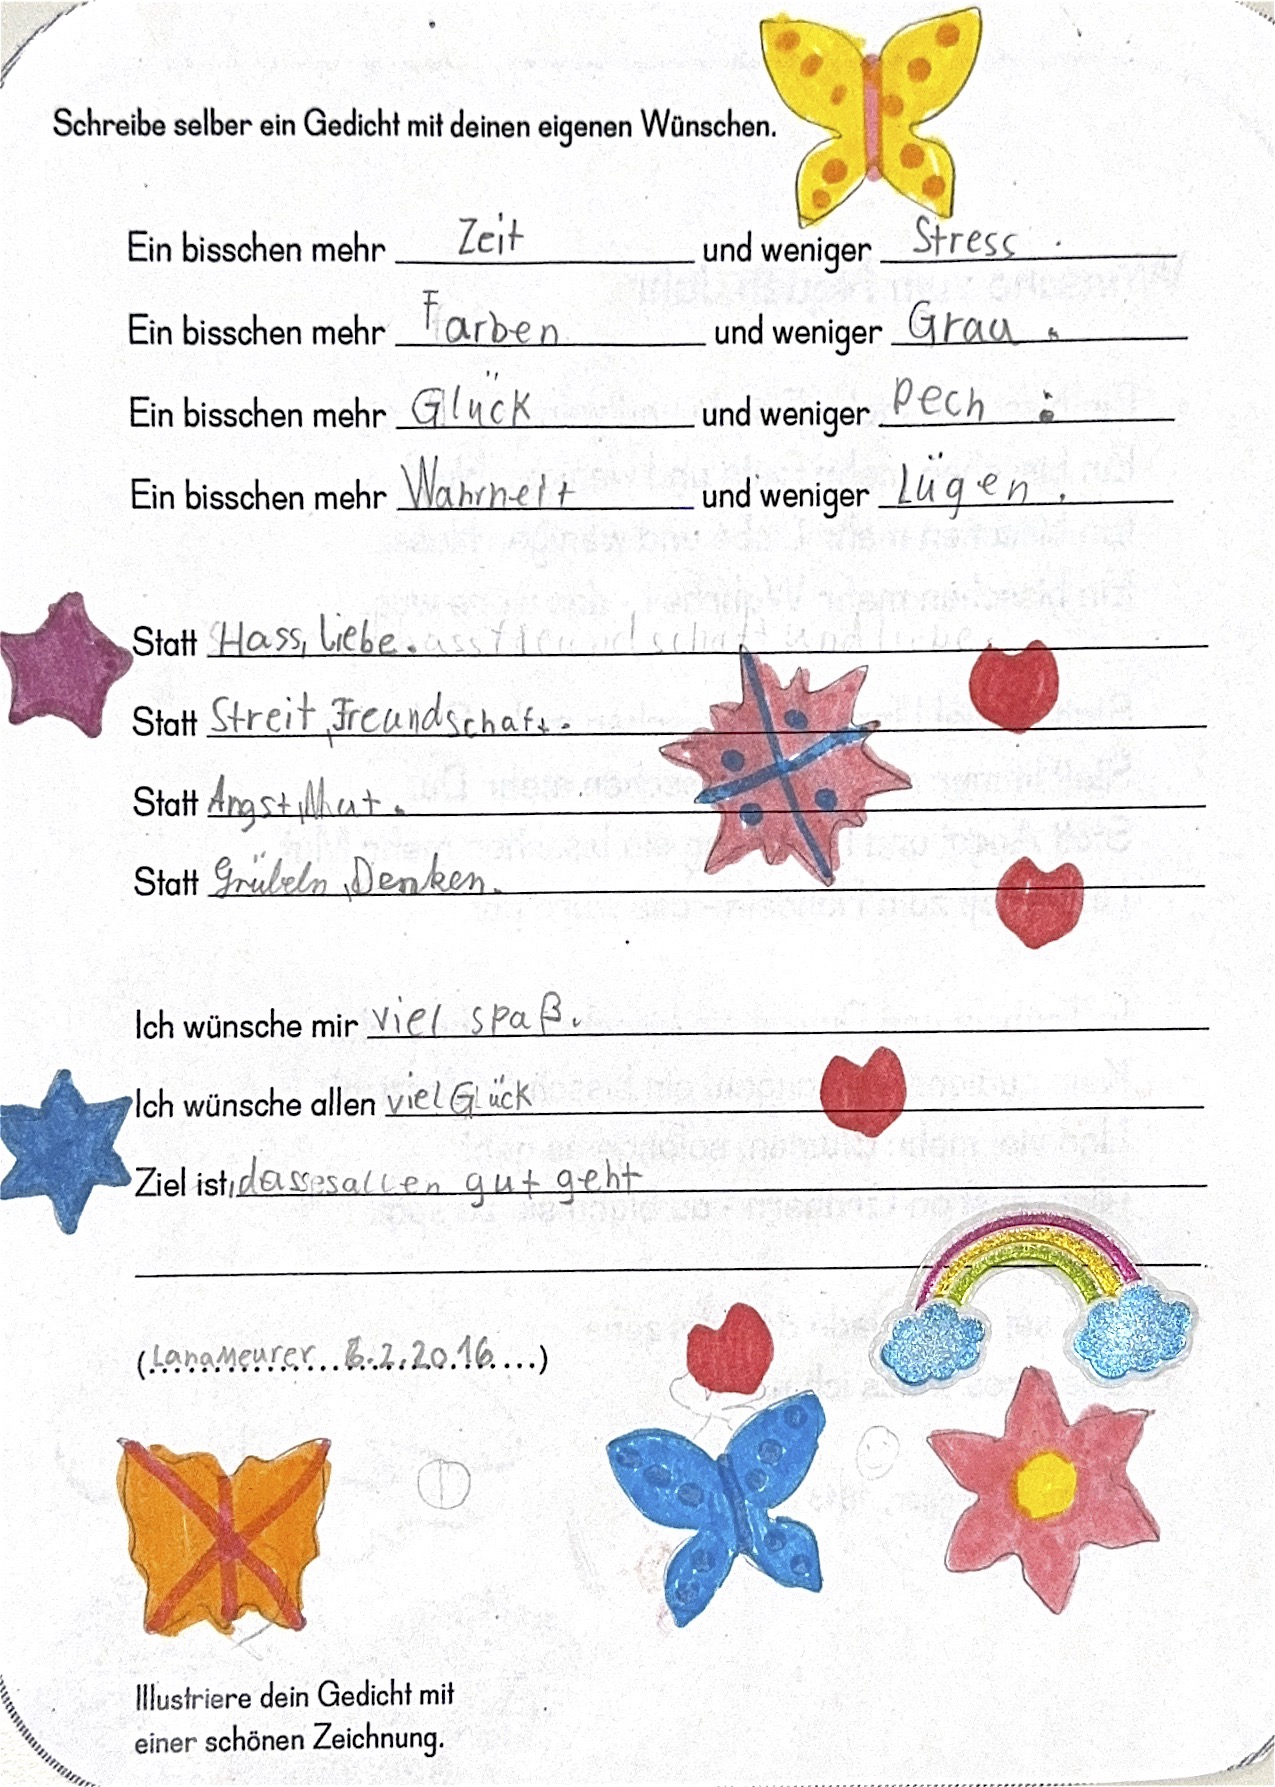 Schreibe selber ein Gedicht mit deinen eigenen Wünschen.
Ein bisschen mehr Zeit und weniger Stress.
Ein bisschen mehr Farben und weniger Grau.
Ein bisschen mehr Glück und weniger Pech.
Ein bisschen mehr Wahrheit und weniger Lügen.
Statt Hass, Liebe.
Statt Streit, Freundschaft.
Statt Angst, Mut.
Statt Grübeln, Denken.
Ich wünsche mir viel spaß.
Ich wünsche allen viel Glück
Ziel ist, dass es allen gut geht
(Lana Meurer 6.2.2016)
Illustriere dein Gedicht mit
einer schönen Zeichnung.